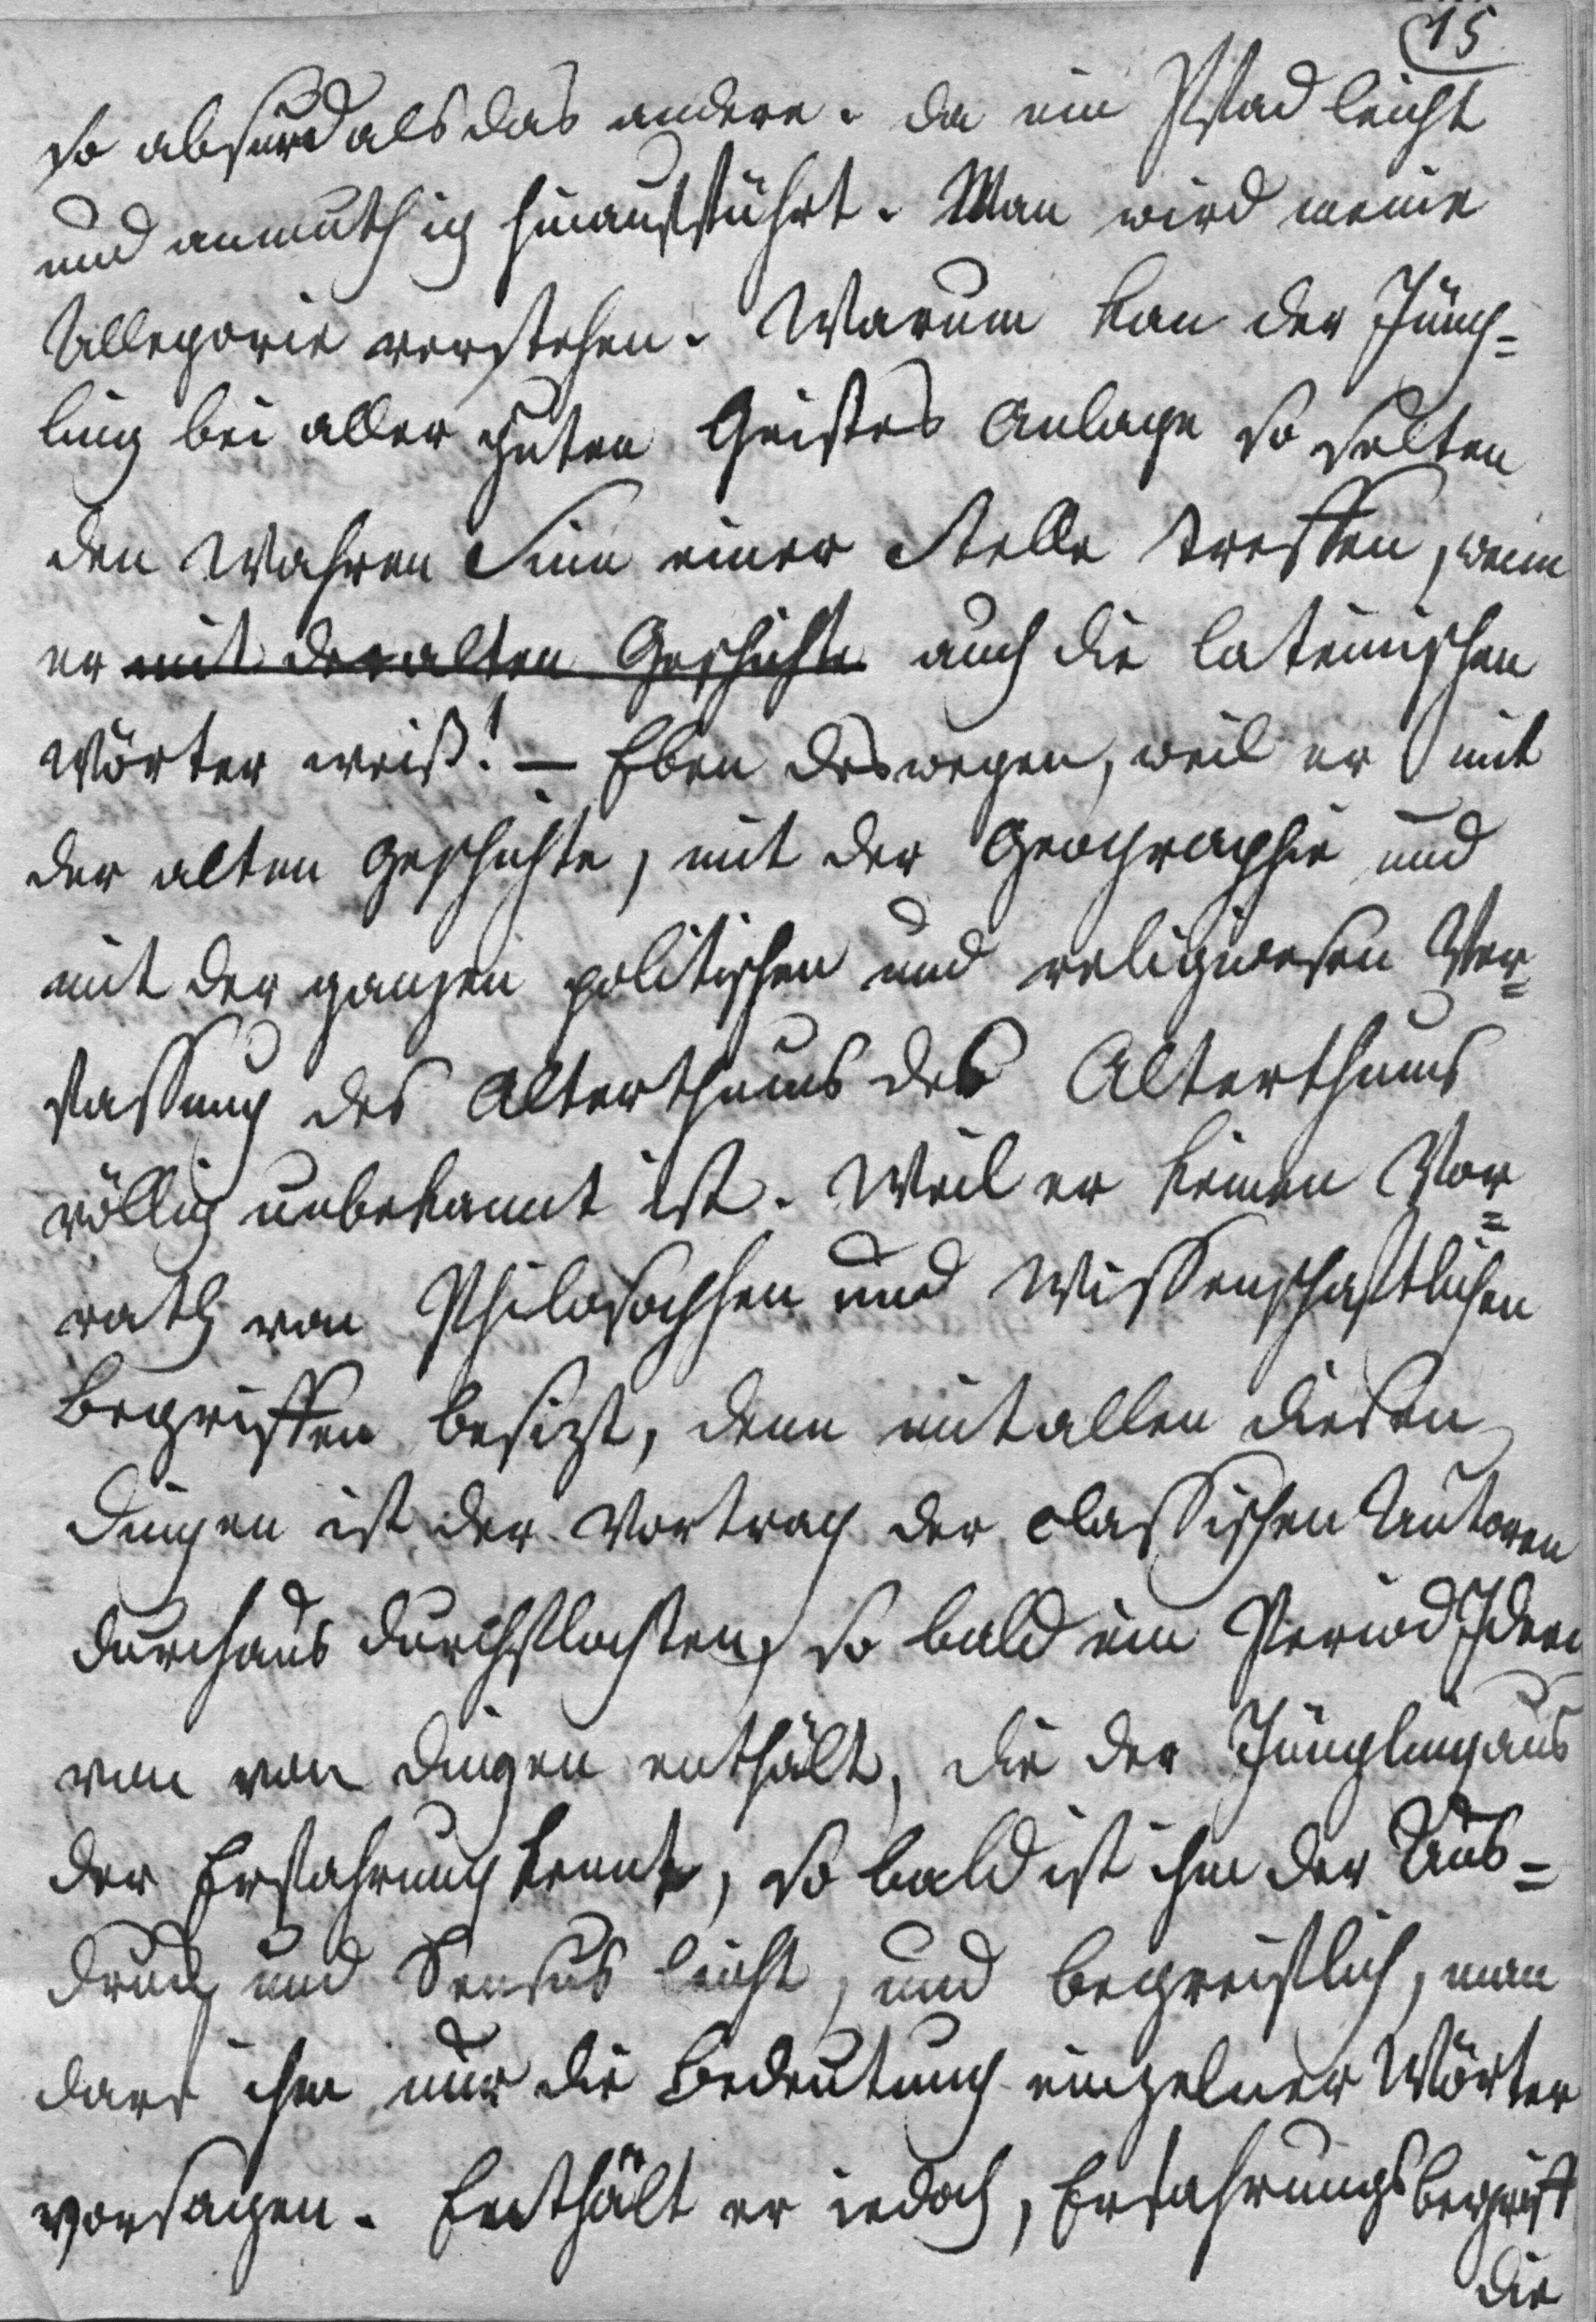 15
so absurd als das andere. da ein Pfad leicht
und anmuthig hinaufführt. Man wird meine
Allegorie verstehen. Warum kan der Jüng=
ling bei aller guten Geistes Anlage so selten
den wahren Sinn einer Stelle treffen, wenn
er mit der alten Geschichte auch die lateinischen
Wörter weiß! – Eben deswegen, weil er mit
der alten Geschichte, mit der Geographie und
mit der ganzen politischen und religioesen Ver=
fassung des Alterthums des Alterthums
völlig unbekannt ist. Weil er keinen Vor=
rath von Philosophhen und Wissenschaftlichen
Begriffen besizt, denn mit allen diesen
Dingen ist der Vortrag der classischen Autoren
durchaus durchflochten, so bald ein Period Ideen
von von Dingen enthält, die der Jüngling aus
der Erfahrung kennt, so bald ist ihm der Aus=
druck und Sensus leicht, und begreiflich, man
darf ihm nur die Bedeutung einzelner Wörter
vorsagen. Enthält er iedoch, Erfahrungsbegriff
die